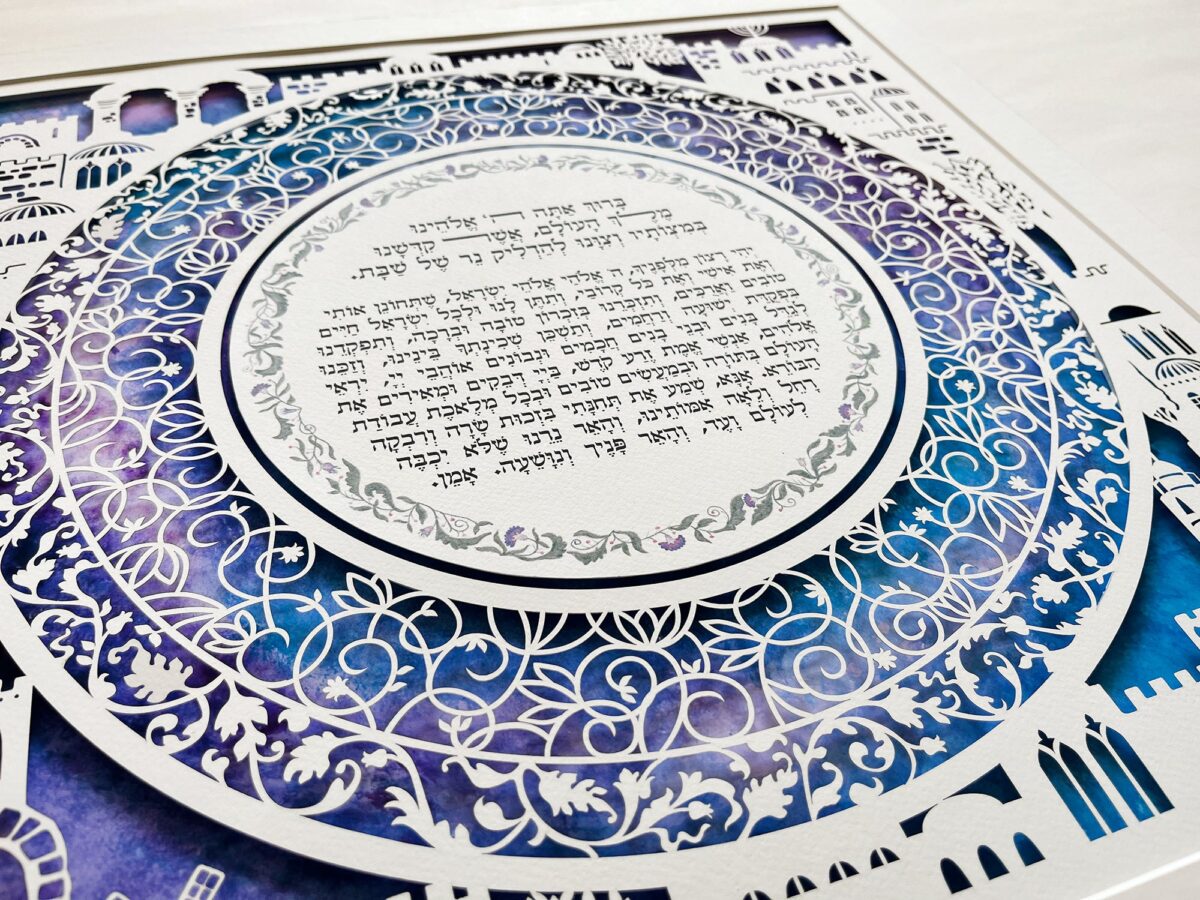 בָּרוּךְ אַתָּה ה׳ אֱלֹהֵינוּ
מֶלֶךְ הָעוֹלָם, אֲשֶׁר קִדְּשָׁנוּ
בְּמִצְוֹתָיו וְצִוָּנוּ לְהַדְלִיק נֵר שֶׁל שַׁבָּת.
יְהִי רָצוֹן מִלְּפָנֶיךָ, ה אֱלֹהַי אֱלֹהֵי יִשְׂרָאֵל, שֶׁתְּחוֹנֵן אוֹתִי
וְאֶת אִישִׁי וְאֶת כָּל קְרוֹבַי, וְתִתֵּן לָנוּ וּלְכָל יִשְׂרָאֵל חַיִּים
טוֹבִים וַאֲרֻכִּים, וְתִזְכְּרֵנוּ בְּזִכְרוֹן טוֹבָה וּבְרָכָה, וְתִפְקְדֵנוּ
בִּפְקֻדַּת יְשׁוּעָה וְרַחֲמִים, וְתַשְׁכֵּן שְׁכִינָתְךָ בֵּינֵינוּ, וְזַכֵּנוּ
לְגַדֵּל בָּנִים וּבְנֵי בָנִים חֲכָמִים וּנְבוֹנִים אוֹהֲבֵי יְיָ, יִרְאֵי
אֱלֹהִים, אַנְשֵׁי אֱמֶת זֶרַע קֹדֶשׁ, בַּיְיָ דְּבֵקִים וּמְאִירִים אֶת
הָעוֹלָם בְּתוֹרָה וּבְמַעֲשִׂים טוֹבִים וּבְכָל מְלֶאכֶת עֲבוֹדַת
הַבּוֹרֵא. אָנָּא, שְׁמַע אֶת תְּחִנָּתִי בִּזְכוּת שָׂרָה וְרִבְקָה
רָחֵל וְלֵאָה אִמּוֹתֵינוּ, וְהָאֵר נֵרֵנוּ שֶׁלֹּא יִכְבֶּה
לְעוֹלָם וָעֶד, וְהָאֵר פָּנֶיךָ וְנִוָּשֵׁעָה. אָמֵן.